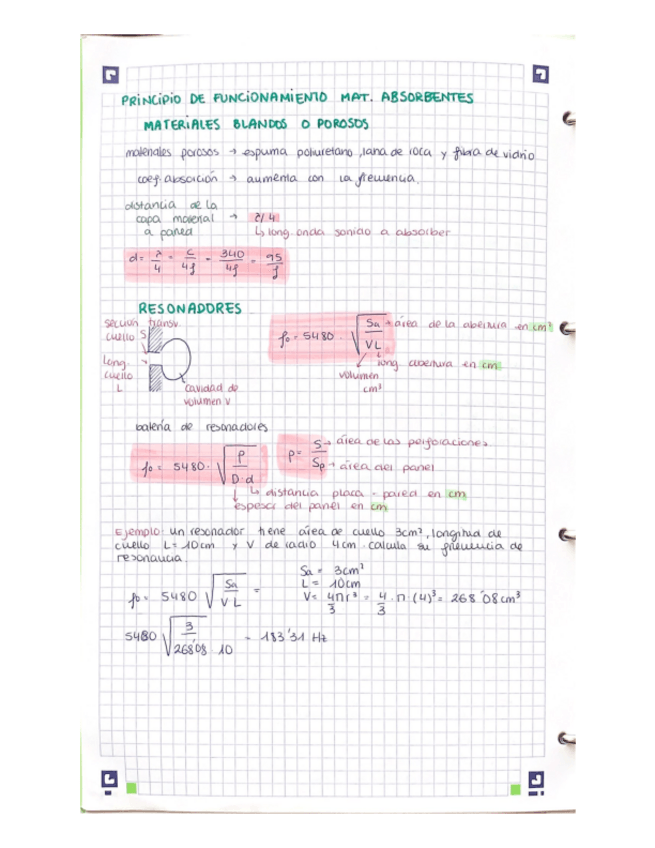 PRINCIPIO DE FUNCIONAMIENTO MAT. ABSORBENTES
MATERIALES BLANDOS O POROSOS
materiales porosos → espuma poliuretano, lana de roca y fibra de vidrio
coef. absorción → aumenta con la frecuencia.
distancia de la
capa material → λ/4
a pared ↳ long. onda sonido a absorber
d = λ/4 = c/4f = 340/4f = 95/f
RESONADORES
sección transv.
cuello S
Long.
cuello
L
cavidad de
volumen V
f₀ = 5480 · √(Sa/VL)
→ área de la abertura en cm²
long abertura en cm
volumen
cm³
batería de resonadores
f₀ = 5480 · √(P/D·d)
P = S/Sp
S → área de las perforaciones
Sp → área del panel
↳ distancia placa - pared en cm
espesor del panel en cm
Ejemplo: un resonador tiene área de cuello 3cm², longitud de
cuello L = 10cm y V de radio 4cm. calcula su frecuencia de
resonancia.
Sa = 3cm²
L = 10cm
f₀ = 5480 √(Sa/VL) =
V = 4πr³/3 = 4/3 · π · (4)³ = 268'08cm³
5480 √(3/268'08 · 10) = 183'31 Hz